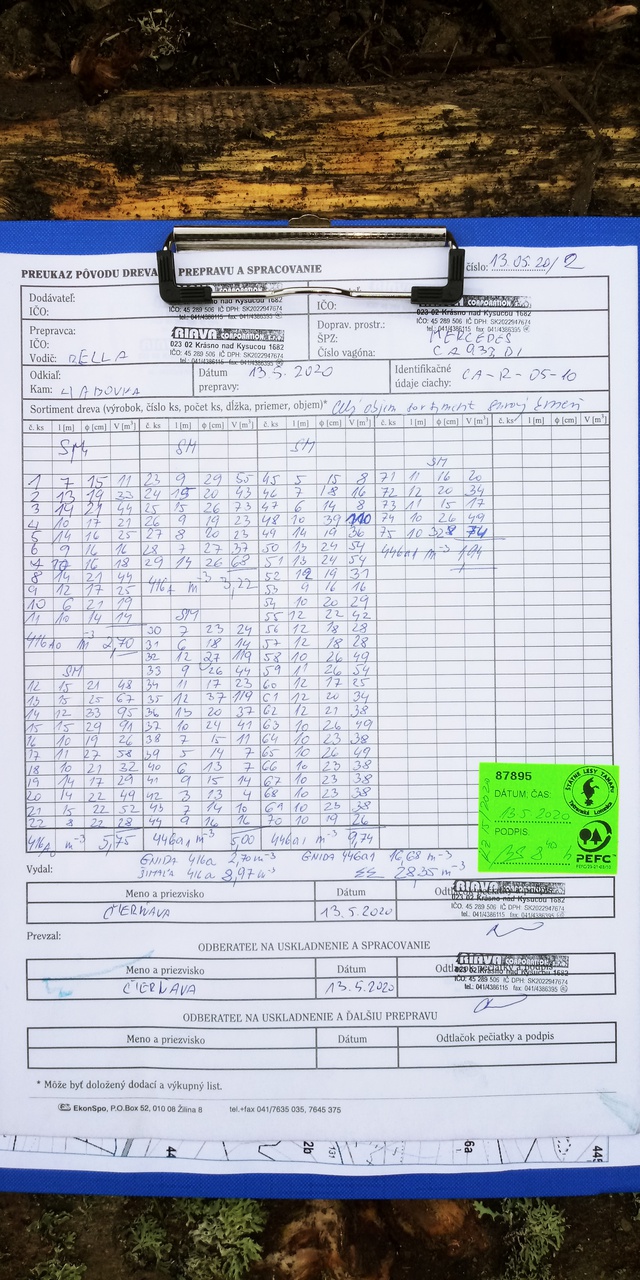 PREUKAZ PÔVODU DREVA PREPRAVU A SPRACOVANIE
číslo: 13.05.20/2
Dodávateľ:
IČO:
CORPORATION
023 02 Krásno nad Kysucou 1682
IČO: 45 289 506 IČ DPH: SK2022947674
tel.: 041/4386115 fax: 041/4386395
IČO:
CORPORATION
023 02 Krásno nad Kysucou 1682
IČO: 45 289 506 IČ DPH: SK2022947674
Prepravca:
IČO:
Vodič: DELLA
RIAVA CORPORATION
023 02 Krásno nad Kysucou 1682
IČO: 45 289 506 IČ DPH: SK2022947674
tel.: 041/4386115 fax: 041/4386395
Doprav. prostr.: MERCEDES
ŠPZ: CA 933 DI
Číslo vagóna:
Odkiaľ:
Kam:
Dátum prepravy: 13.5.2020
Identifikačné údaje ciachy: CA-R-05-10
Sortiment dreva (výrobok, číslo ks, počet ks, dĺžka, priemer, objem)* Celý objem sortiment
č. ks l [m] φ [cm] V [m³] č. ks l [m] φ [cm] V [m³] č. ks l [m] φ [cm] V [m³] č. ks l [m] φ [cm] V [m³] č. ks l [m] φ [cm] V [m³]
SM SM SM
SM
1 7 15 11 23 9 29 55 45 5 15 8 71 11 16 20
2 13 19 33 24 15 20 43 46 7 18 16 72 12 20 34
3 14 21 44 25 15 26 73 47 6 14 8 73 11 15 17
4 10 17 21 26 9 19 23 48 10 39 110 74 10 26 49
5 14 16 25 27 8 20 23 49 14 19 36 75 10 32 74
6 9 16 16 28 7 27 37 50 13 24 54 446a1 m³ 1,94
7 16 18 29 14 26 68 51 13 24 54
8 14 21 44 52 12 19 31
9 12 17 25 416a m³ 3,22 53 9 16 16
10 6 21 19 54 10 20 29
11 10 14 14 SM 55 12 22 42
416a0 m³ 2,70 30 7 23 24 56 12 18 28
31 6 18 14 57 12 18 28
32 12 27 119 58 10 26 49
SM 33 9 26 44 59 11 26 54
12 15 21 48 34 11 17 23 60 12 17 25
13 15 25 67 35 12 37 119 61 12 20 34
14 12 33 95 36 13 20 37 62 12 21 38
15 15 29 91 37 10 24 41 63 10 26 49
16 10 19 26 38 7 15 11 64 10 23 38
17 11 27 58 39 5 14 7 65 10 26 49
18 10 21 32 40 6 13 7 66 10 23 38
19 14 17 29 41 9 15 14 67 10 23 38
20 14 22 49 42 3 13 4 68 10 23 38
21 15 22 52 43 7 14 10 69 10 23 38
22 8 22 28 44 9 16 16 70 10 19 26
416a m³ 5,75 446a1 m³ 5,00 446a1 m³ 9,74
87895
DÁTUM, ČAS:
13.5.2020
PODPIS:
ŠTÁTNE LESY TANAPU
PEFC
Vydal:
GNIDA 416a 2,70 m³ GNIDA 446a1 16,68 m³
416a 8,97 m³ ΣΣ 28,35 m³
Meno a priezvisko Dátum Odtlačok pečiatky a podpis
ČIERŇAVA 13.5.2020
CORPORATION
023 02 Krásno nad Kysucou 1682
IČO: 45 289 506 IČ DPH: SK2022947674
tel.: 041/4386115 fax: 041/4386395
Prevzal:
ODBERATEĽ NA USKLADNENIE A SPRACOVANIE
Meno a priezvisko Dátum Odtlačok pečiatky a podpis
ČIERŇAVA 13.5.2020
RIAVA CORPORATION
023 02 Krásno nad Kysucou 1682
IČO: 45 289 506 IČ DPH: SK2022947674
tel.: 041/4386115 fax: 041/4386395
ODBERATEĽ NA USKLADNENIE A ĎALŠIU PREPRAVU
Meno a priezvisko Dátum Odtlačok pečiatky a podpis
* Môže byť doložený dodací a výkupný list.
EkonSpo, P.O.Box 52, 010 08 Žilina 8 tel.+fax 041/7635 035, 7645 375
44 2b 131 6a 445